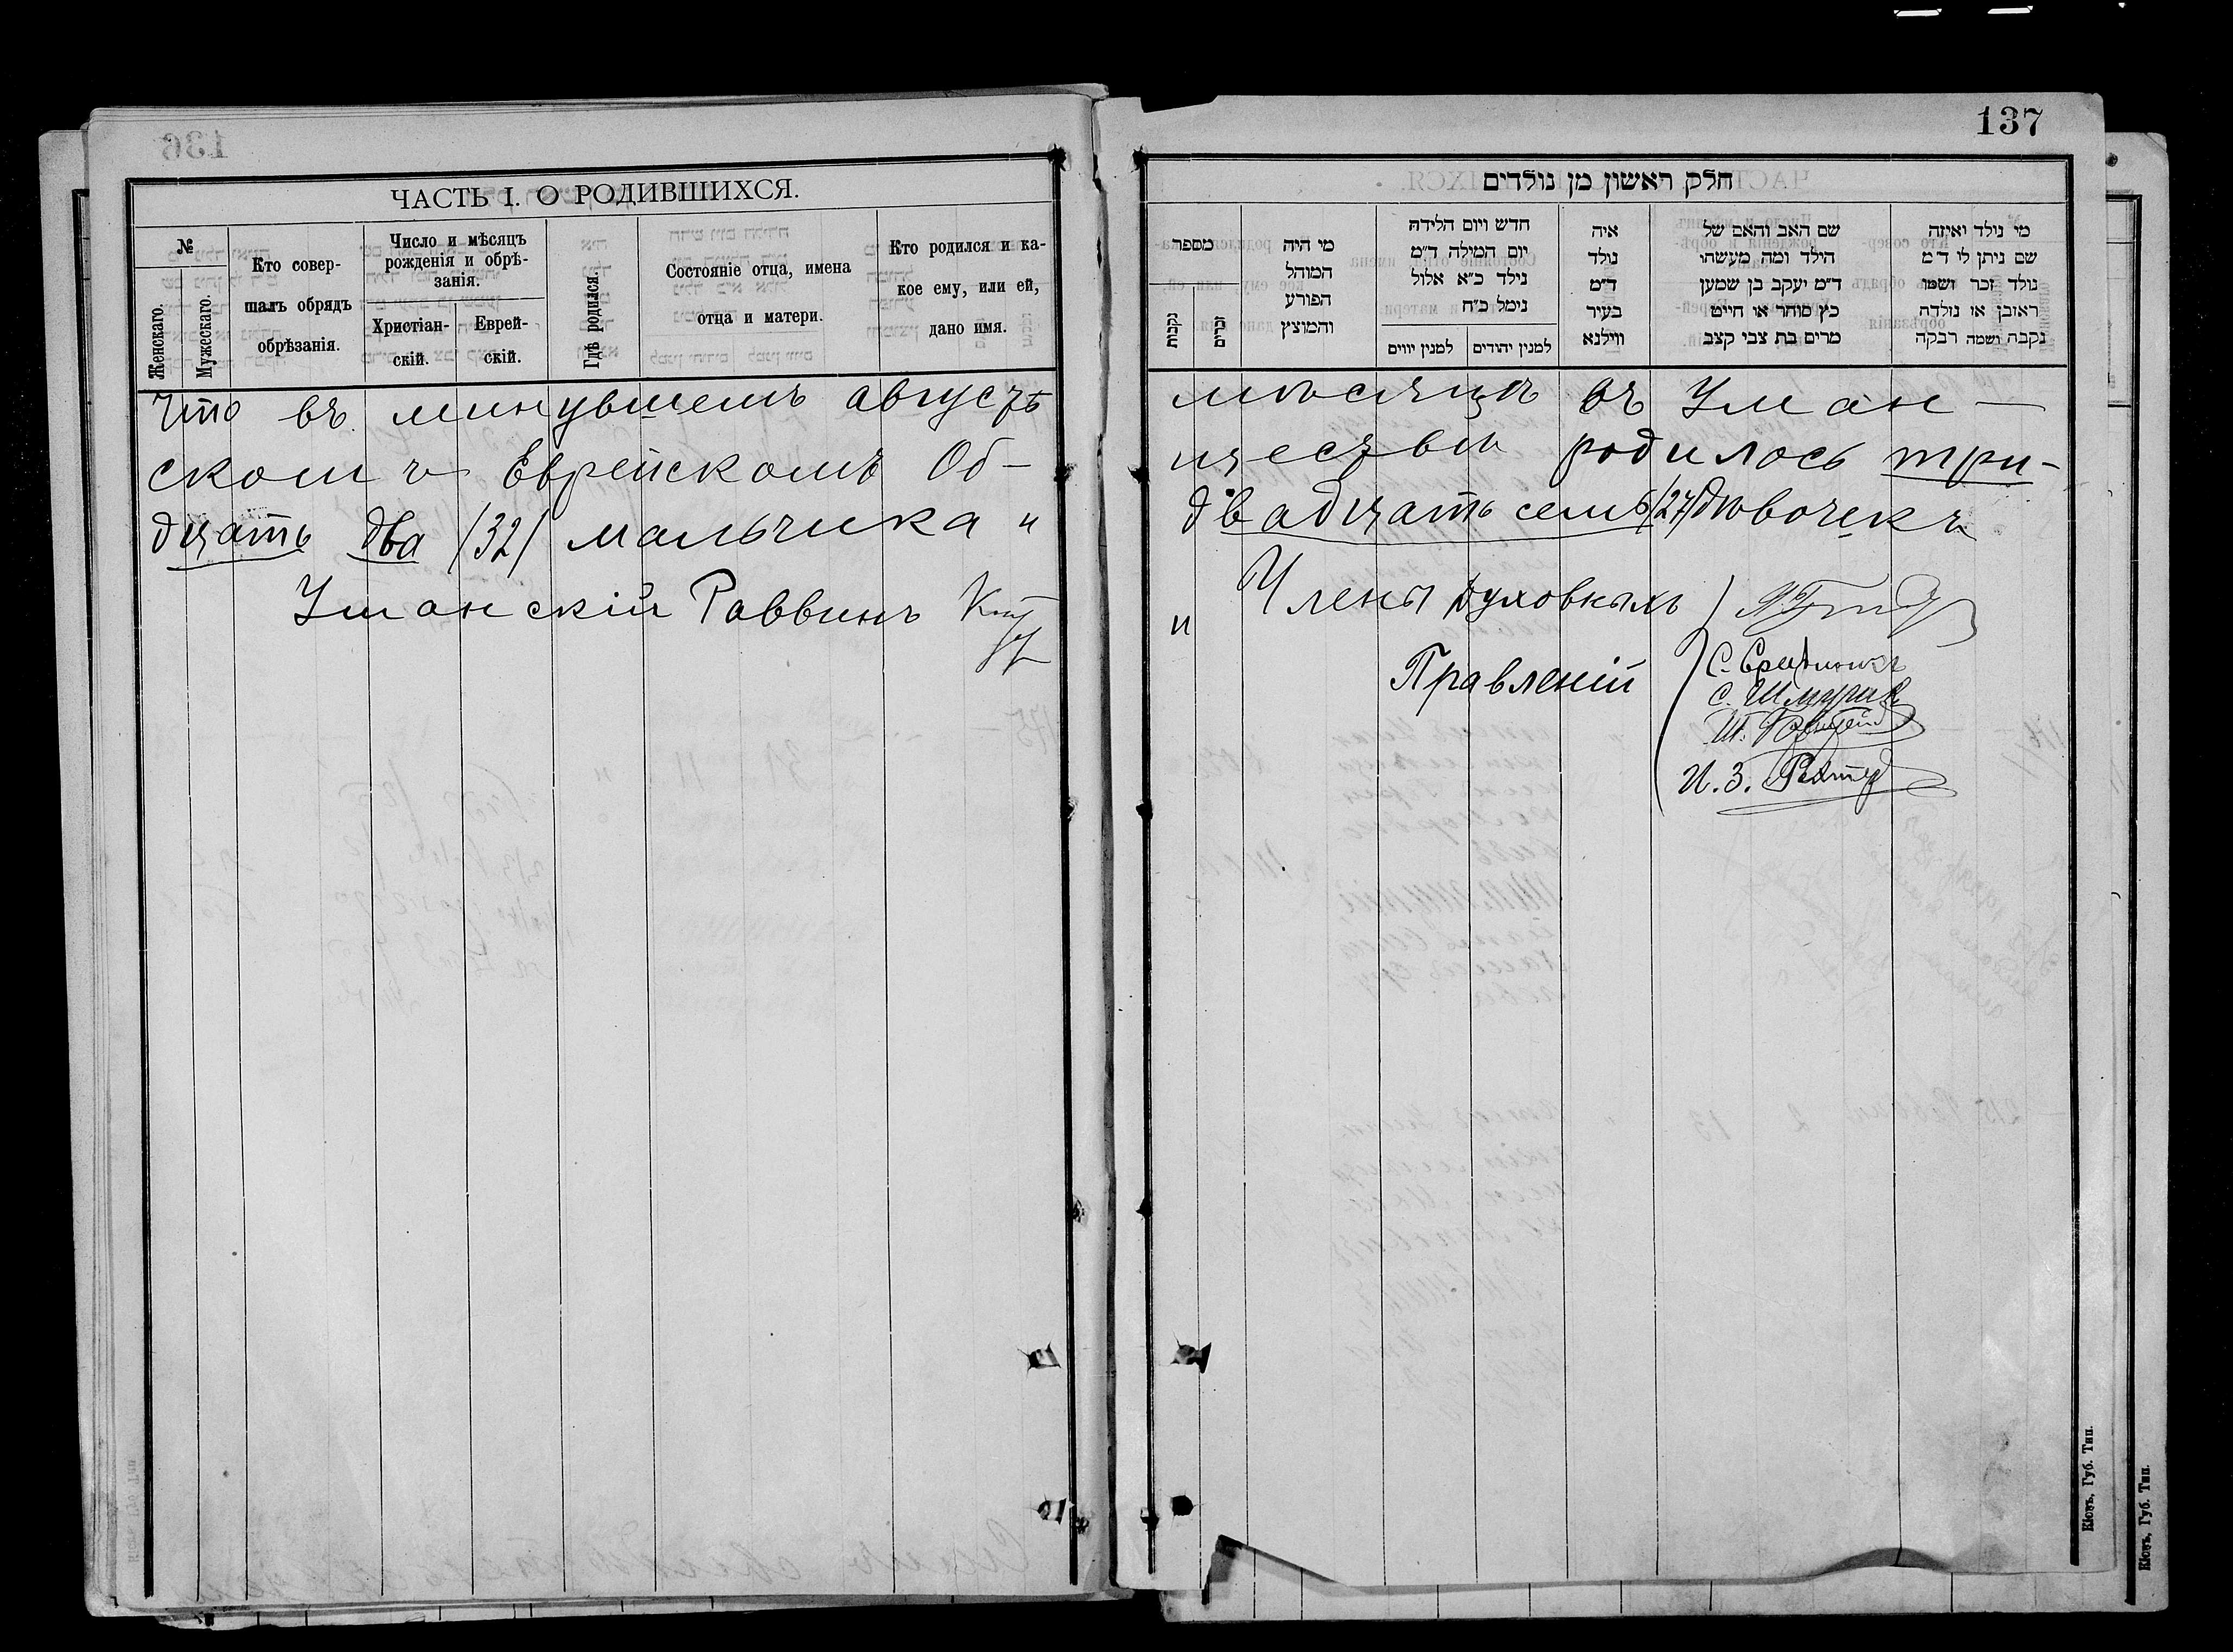 137
136
ЧАСТЬ I. О РОДИВШИХСЯ.
№
Женскаго.
Мужескаго.
Кто совер-
шалъ обрядъ
обрѣзанія.
Число и мѣсяцъ
рожденія и обрѣ-
занія.
Христіан-
скій.
Еврей-
скій.
Гдѣ родился.
Состояніе отца, имена
отца и матери.
Кто родился и ка-
кое ему, или ей,
дано имя.
חלק ראשון מן נולדים
מספר
נקבות
זכרים
מי היה
המוהל
הפורע
והמוצץ
חדש ויום הלידה
יום המילה ד״מ
נילד כ״א אלול
נימל כ״ח
למנין יווים
למנין יהודים
איה
נולד
ד״מ
בעיר
ווילנא
שם האב והאם של
הילד ומה מעשהו
ד״מ יעקב בן שמען
כץ סוחר או חייט
מרים בת צבי קצב
מי נולד ואיזה
שם ניתן לו ד״מ
נולד זכר ושמו
ראובן או נולדה
נקבה ושמה רבקה
Что въ минувшемъ августѣ мѣсяцѣ въ Уман-
скомъ Еврейскомъ Об-ществѣ родилось три-
дцать два /32/ мальчика и двадцать семь /27/ дѣвочекъ
Уманскій Раввинъ
и Члены Духовныхъ
Правленій
С. Шмурикъ
И. З.
Кіовъ, Губ. Тип.
Кіовъ, Губ. Тип.